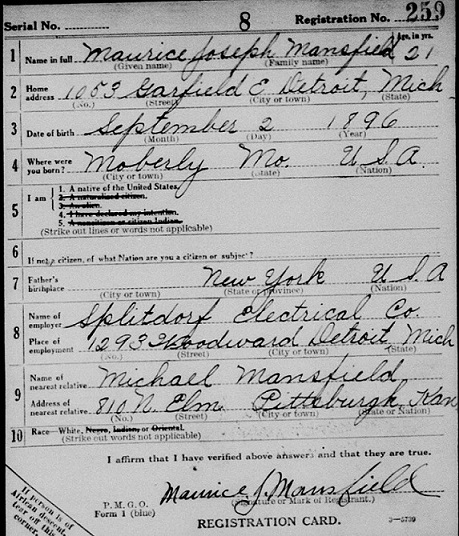 Serial No. 8 Registration No. 259
1 Name in full Maurice Joseph Mansfield Age, in yrs. 21
(Given name) (Family name)
2 Home address 1053 Garfield E Detroit, Mich
(No.) (Street) (City or town) (State)
3 Date of birth September 2 1896
(Month) (Day) (Year)
4 Where were you born? Moberly Mo. U S A
(City or town) (State) (Nation)
5 I am
1. A native of the United States.
2. A naturalized citizen.
3. An alien.
4. I have declared my intention.
5. A noncitizen or citizen Indian.
(Strike out lines or words not applicable)
6 If not a citizen, of what Nation are you a citizen or subject?
7 Father's birthplace New York U S A
(City or town) (State or province) (Nation)
8 Name of employer Splitdorf Electrical Co.
Place of employment 1293 Woodward Detroit Mich
(No.) (Street) (City or town) (State)
9 Name of nearest relative Michael Mansfield
Address of nearest relative 810 N. Elm Pittsburgh Kan
(No.) (Street) (City or town) (State or Nation)
10 Race—White, Negro, Indian, or Oriental.
(Strike out words not applicable)
I affirm that I have verified above answers and that they are true.
Maurice J. Mansfield
P. M. G. O. (Signature or Mark of Registrant.)
Form 1 (blue) REGISTRATION CARD. 3—5739
If person is of
African descent,
tear off this
corner.